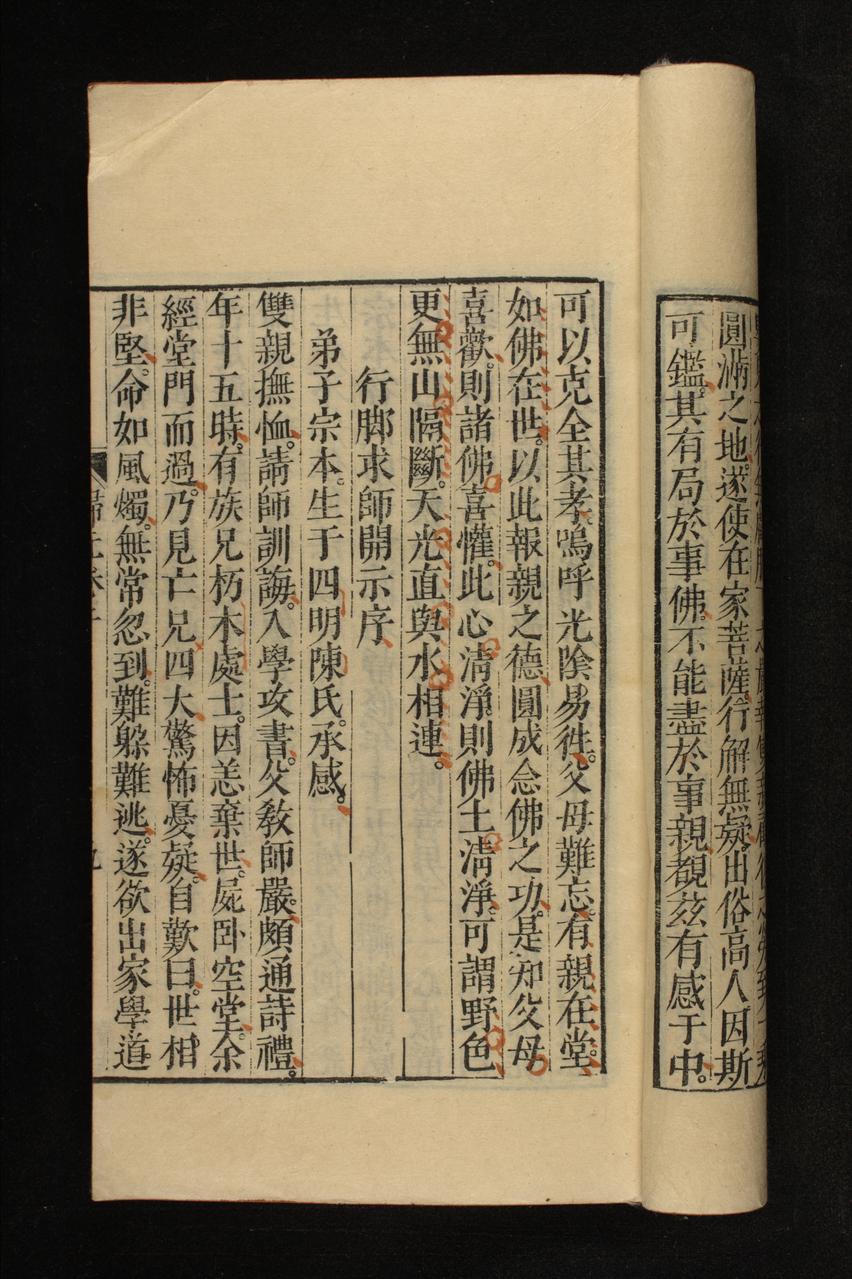 圓滿之地。遂使在家菩薩。行解無疑。出俗高人。因斯
可鑑。其有局於事佛。不能盡於事親。覩玆有感于中。
可以克全其孝。嗚呼光陰易徃。父母難忘。有親在堂。
如佛在世。以此報親之德。圓成念佛之功。是知父母
喜歡。則諸佛喜懽。此心淸淨。則佛土淸淨。可謂野色
更無山隔斷。天光直與水相連。
行脚求師開示序
弟子宗本。生于四明陳氏。承感。
雙親撫恤。請師訓誨。入學攻書。父教師嚴。頗通詩禮。
年十五時。有族兄朽木處士。因恙棄世。屍卧空堂。余
經堂門而過。乃見亡兄四大。驚怖憂疑。自歎曰。世相
非堅。命如風燭。無常忽到。難躱難逃。遂欲出家學道。